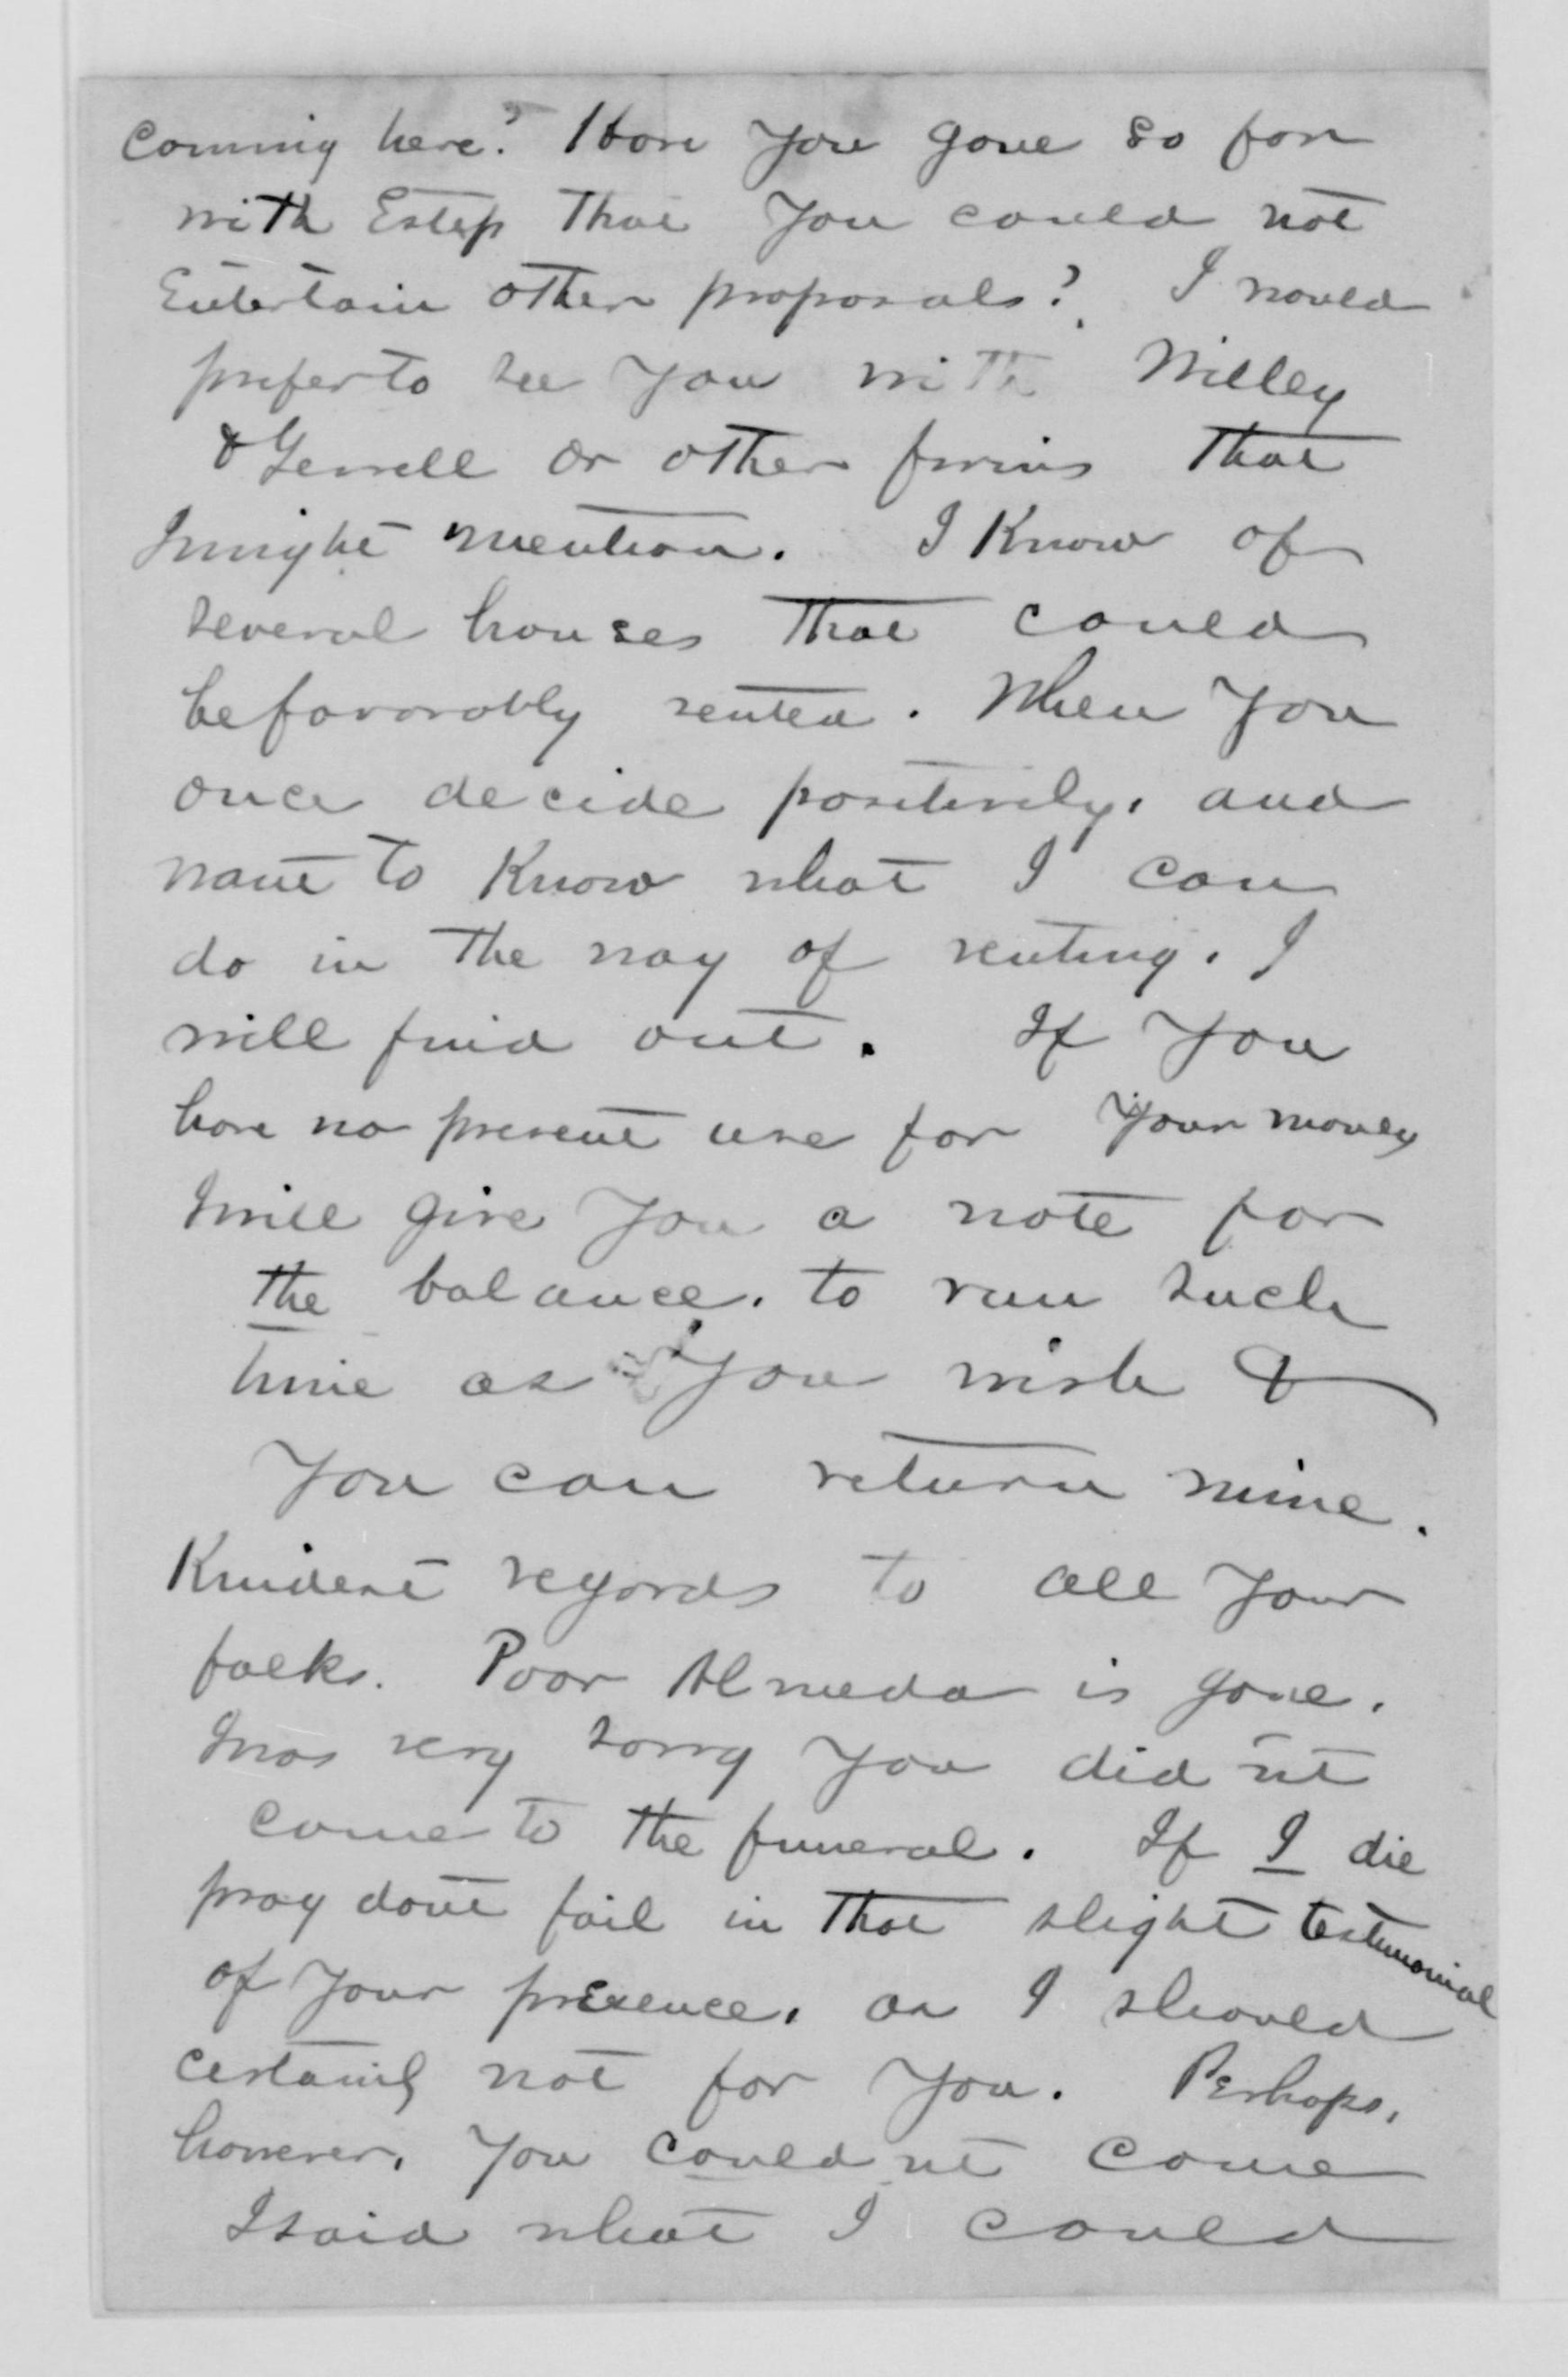 comming here? Have you gone so far
with Estep that you could not
Entertain other proposals? I would
prefer to see you with Willey
& Terrell or other firms that
I might mention. I Know of
several houses that could
be favorably rented. When you
once decide positively, and
want to Know what I can
do in the way of renting. I
will find out. If you
have no present use for your money
I will give you a note for
the balance. to run such
time as you wish &
You can return mine.
Kindest regards to all your
folks. Poor Almeda is gone.
I was very sorry you did n't
come to the funeral. If I die
pray dont fail in that slight testimonial
of your presence, as I should
certainly not for you. Perhaps,
however, you could n't come
I said what I could